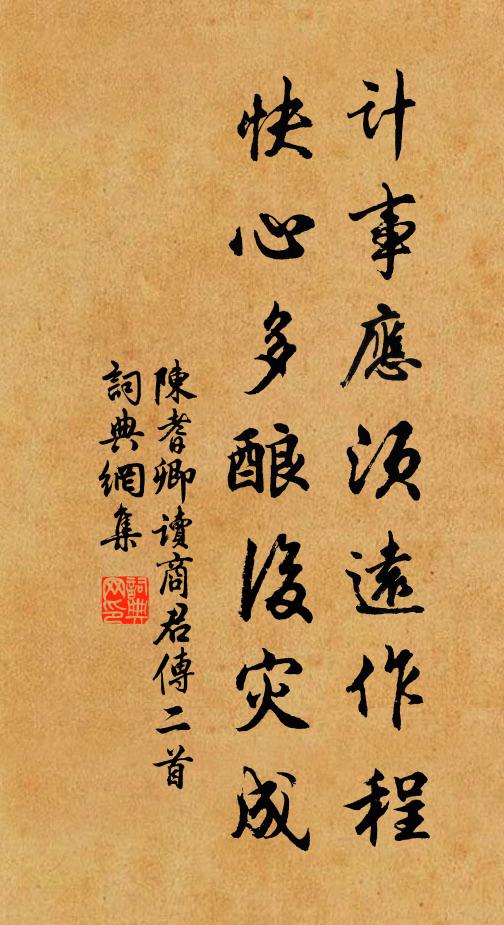 计事應须遠作程
快心多酿後灾成
陳耆卿讀商君傳二首
詞典網集
詞典
网印